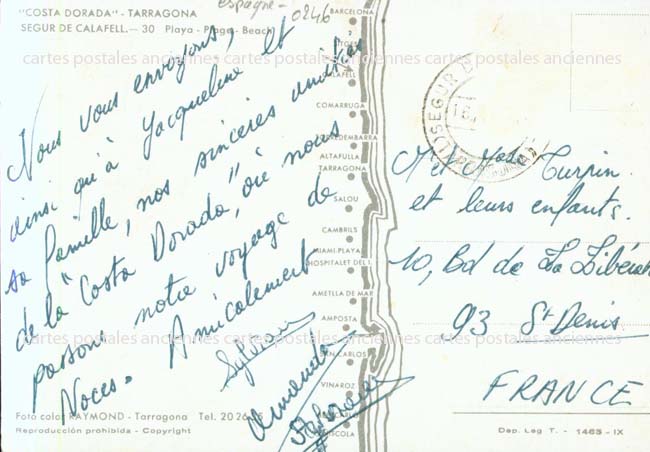 "COSTA DORADA" - TARRAGONA
SEGUR DE CALAFELL.- 30 Playa - Plage - Beach
espagne - 0246
Nous vous envoyons,
ainsi qu'à Jacqueline et
sa famille, nos sincères amitiés
de la "Costa Dorada", où nous
passons notre voyage de
Noces. Amicalement
Sylvain
Amanda
BARCELONA
SITGES
CALAFELL
COMARRUGA
TORREDEMBARRA
ALTAFULLA
TARRAGONA
SALOU
CAMBRILS
MIAMI-PLAYA
HOSPITALET DEL I.
AMETLLA DE MAR
AMPOSTA
SAN CARLOS
VINAROZ
SEGUR D
M et Mme Turpin
et leurs enfants.
10, Bd de La Libérat
93 St Denis
FRANCE
Foto color RAYMOND - Tarragona Tel. 20 26 15
Reproducción prohibida - Copyright
Dep. Leg T. - 1465 - IX
cartes postales anciennes cartes postales anciennes
cartes postales anciennes cartes postales anciennes
cartes postales anciennes cartes postales anciennes